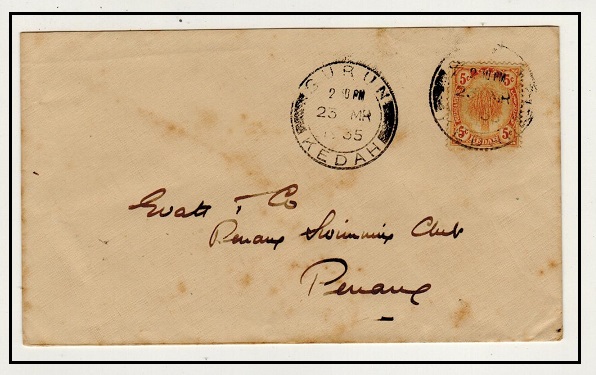 GURUN
2 30 PM
23 MR
1935
KEDAH
5c 5c
5c KEDAH 5c
Evatt & Co
Penang Swimming Club
Penang